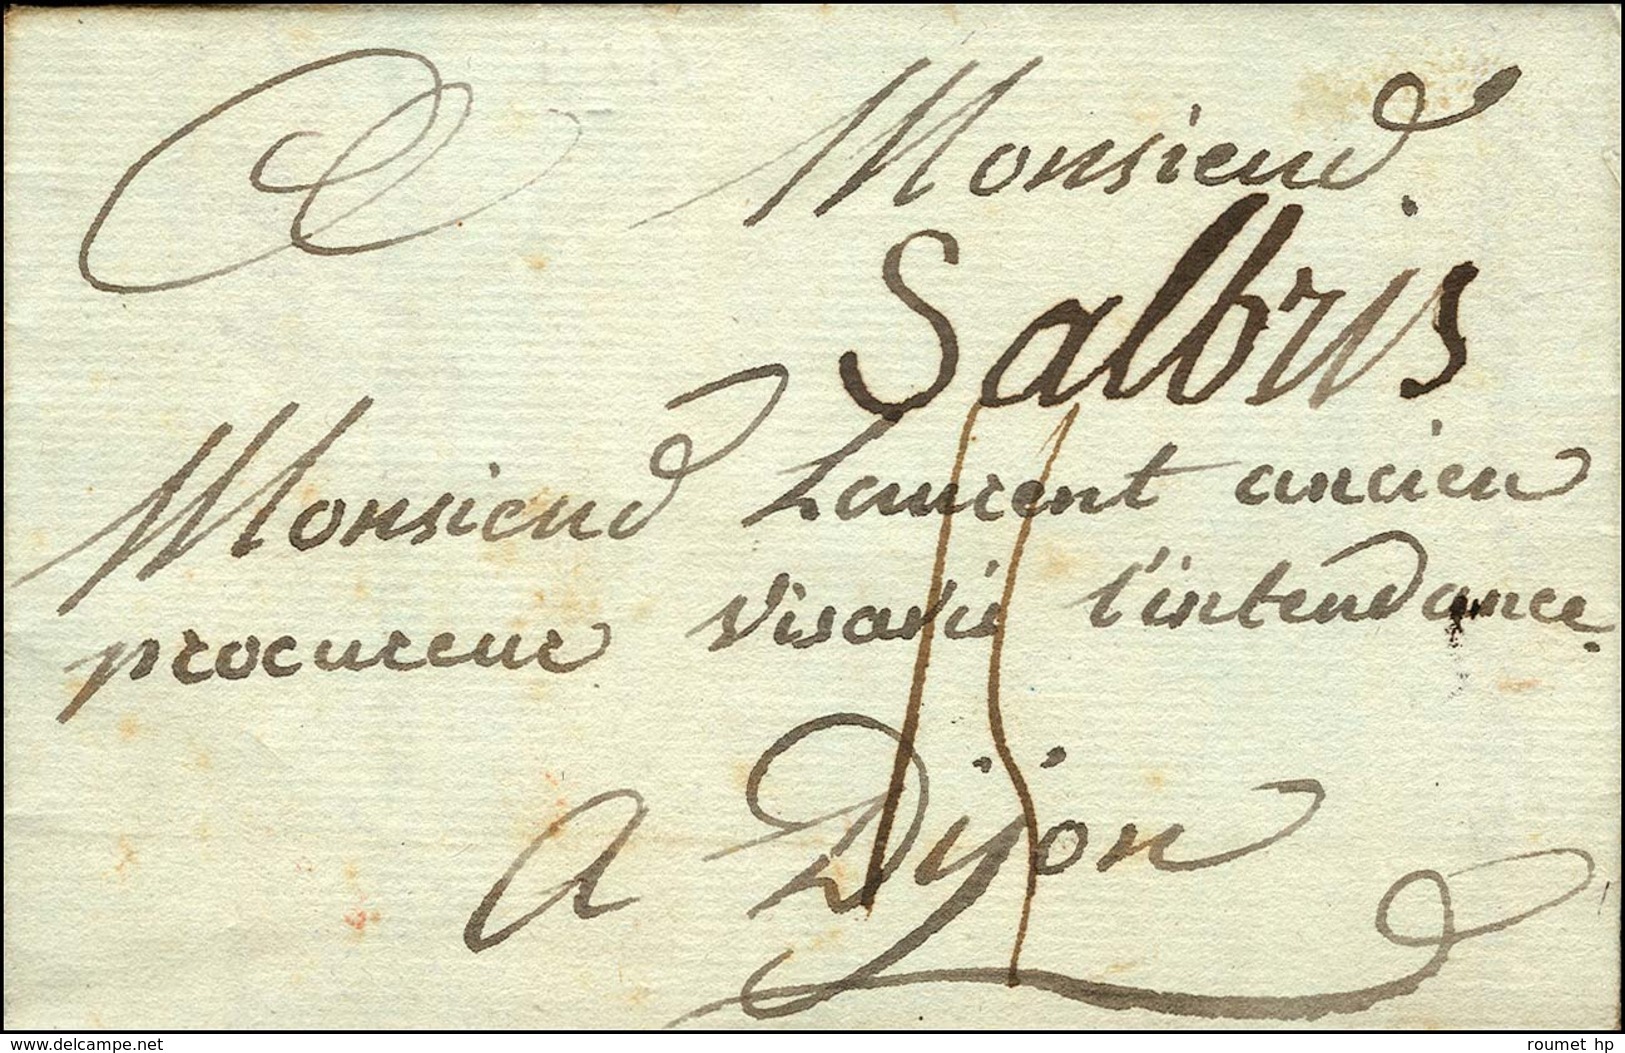 Monsieur
Salbris
Monsieur Laurent ancien
procureur visavis l'intendance.
a Dijon
www.delcampe.net
roumet hp